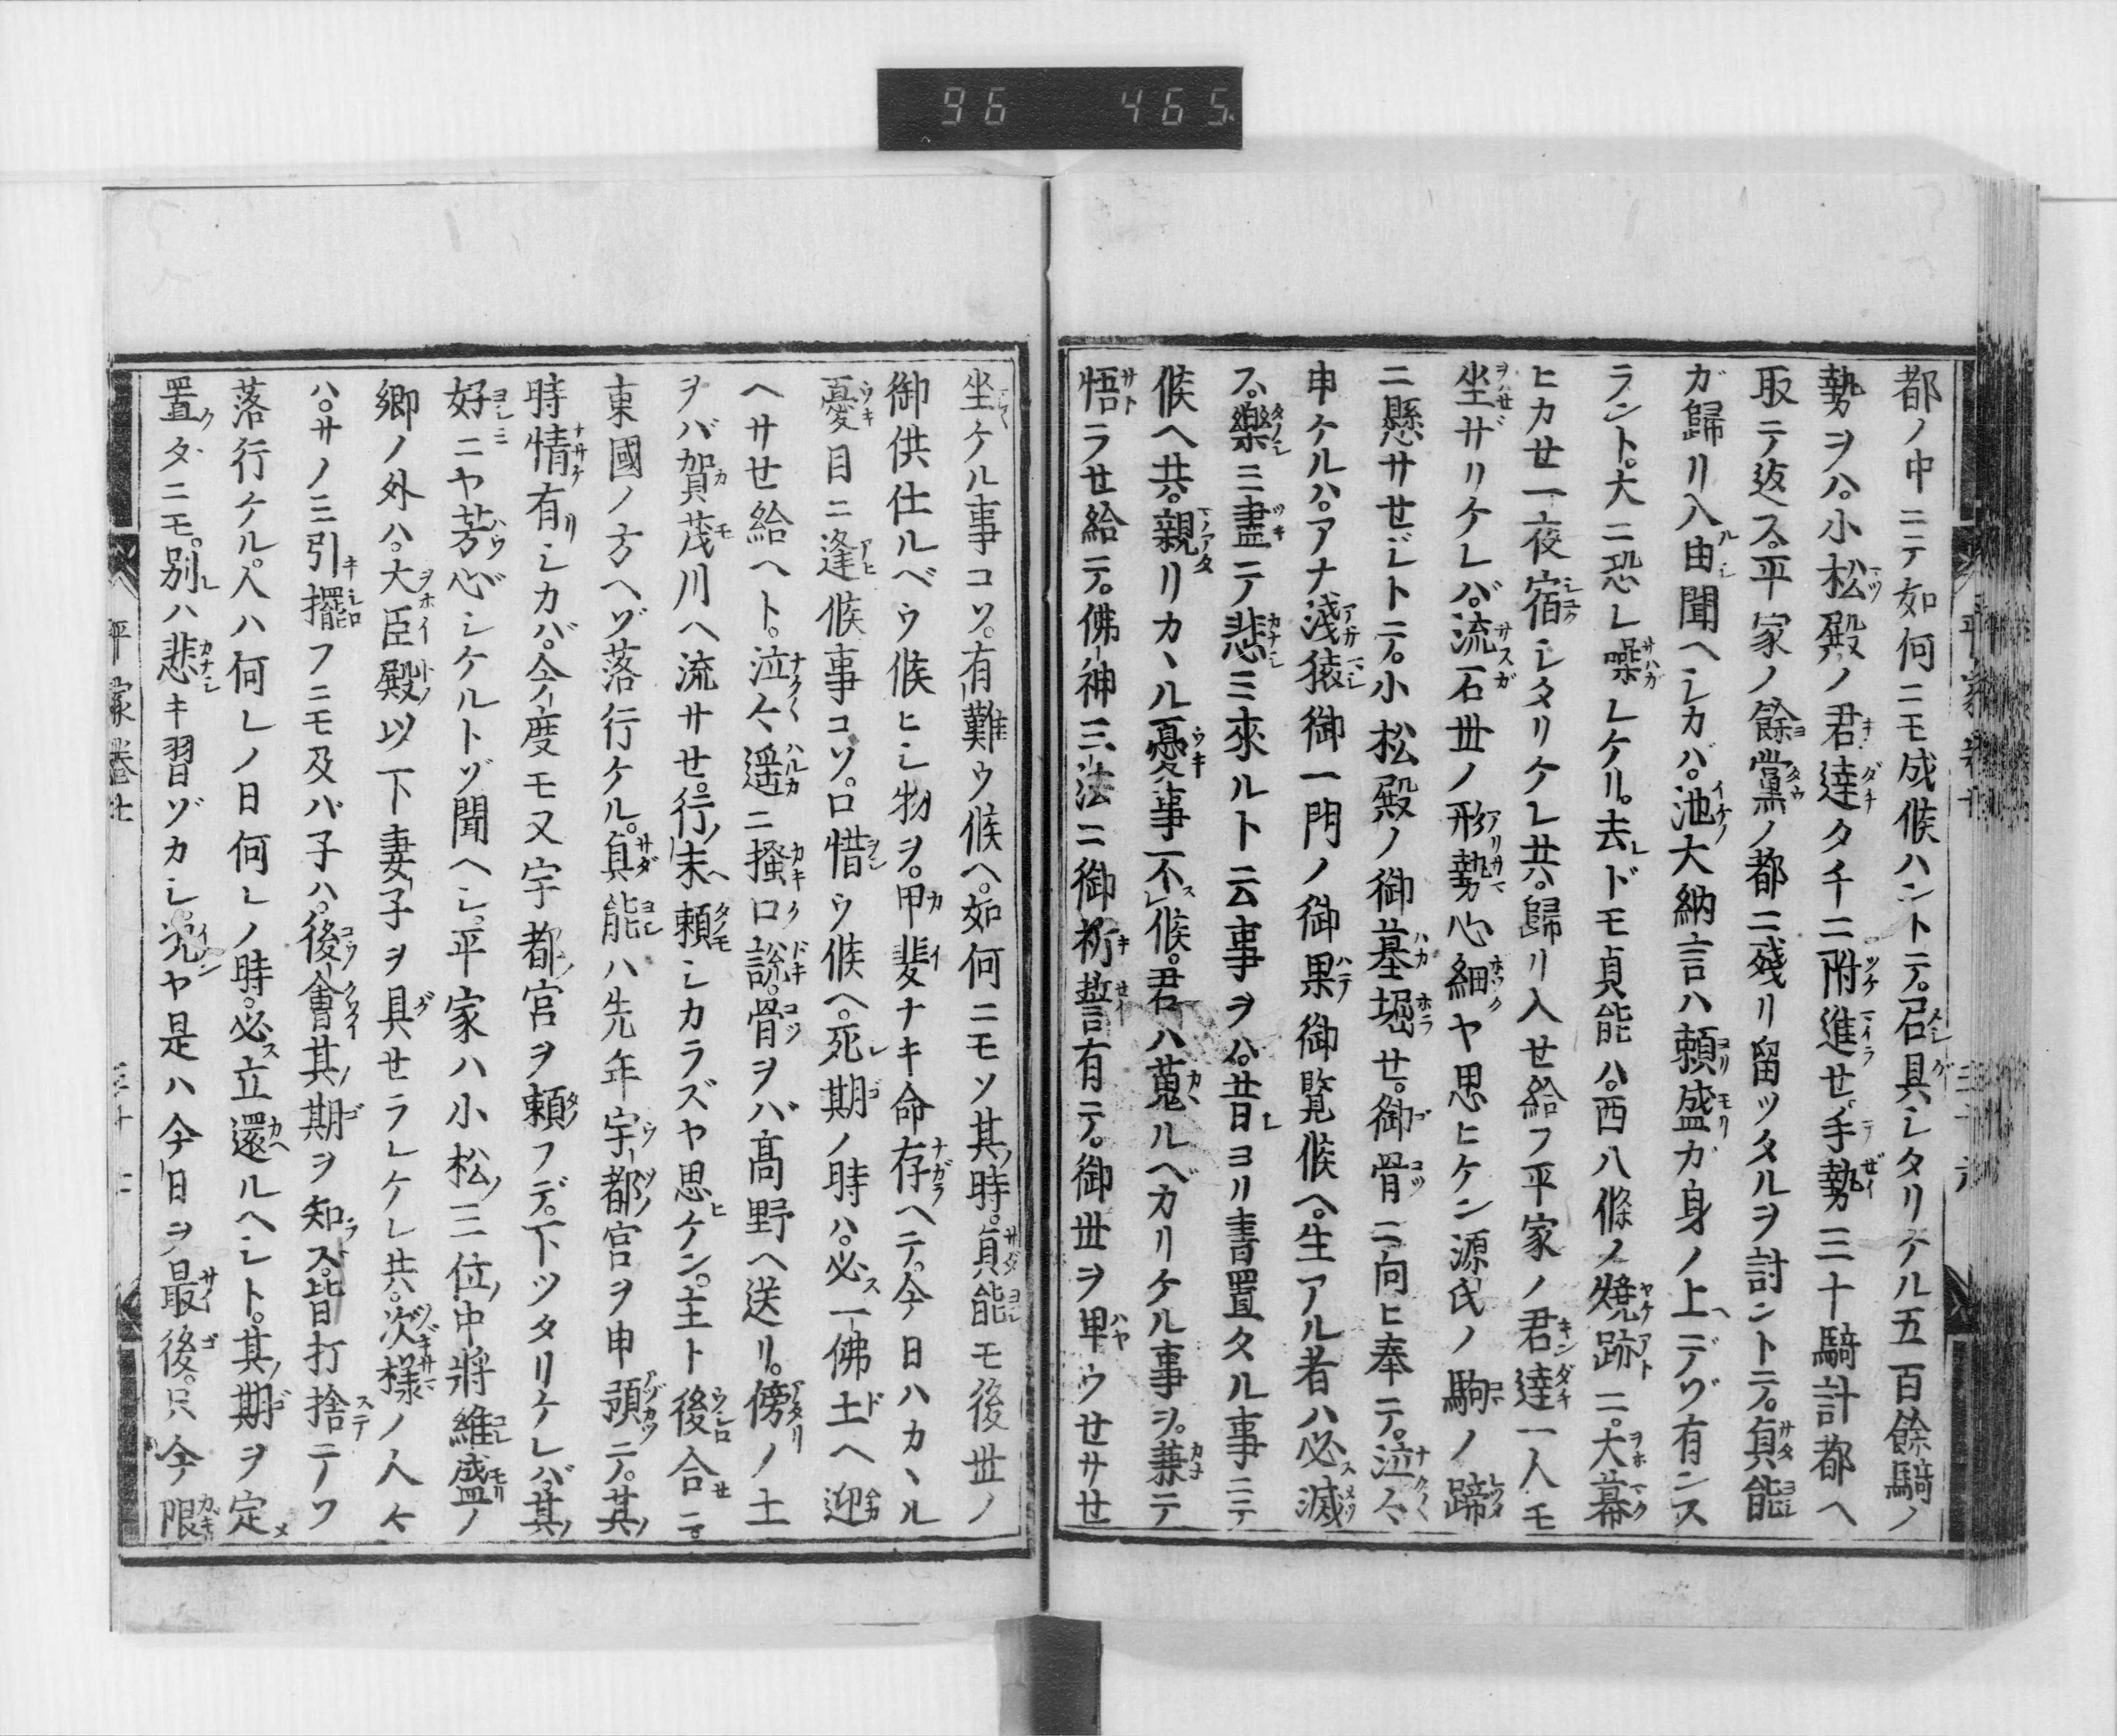 96 465
都ノ中ニテ如何ニモ成候ハントテ。召具シタリケル五百餘騎ノ
勢ヲハ。小松殿ノ君達タチニ附進セ。手勢三十騎計都ヘ
取テ返ス。平家ノ餘黨ノ都ニ殘リ留ツタルヲ討ントテ。貞能
ガ歸リ入由聞ヘシカバ。池大納言ハ頼盛ガ身ノ上デゾ有ンス
ラント。大ニ恐レ噪レケリ。去ドモ貞能ハ。西八條ノ燒跡ニ。大幕
ヒカセ一夜宿シタリケレ共。歸リ入セ給フ平家ノ君達一人モ
坐ザリケレバ。流石世ノ形勢心細ヤ思ヒケン源氏ノ駒ノ蹄
ニ懸サセジトテ。小松殿ノ御墓堀セ。御骨ニ向ヒ奉テ。泣々
申ケルハ。アナ淺猿御一門ノ御果御覧候ヘ。生アル者ハ必滅
ス。樂ミ盡テ悲ミ來ルト云事ヲハ。昔ヨリ書置タル事ニテ
候ヘ共。親リカヽル憂事不候。君ハ蒐ルベカリケル事ヲ。兼テ
悟ラセ給テ。佛神三法ニ御祈誓有テ。御世ヲ早ウセサセ
坐ケル事コソ。有難ウ候ヘ。如何ニモソ其時。貞能モ後世ノ
御供仕ルベウ候ヒシ物ヲ。甲斐ナキ命存ヘテ。今日ハカヽル
憂目ニ逢候事コソ。口惜ウ候ヘ。死期ノ時ハ。必一佛土ヘ迎
ヘサセ給ヘト。泣々遥ニ掻口説。骨ヲバ髙野ヘ送リ。傍ノ土
ヲバ賀茂川ヘ流サセ。行末頼シカラズヤ思ケン。主ト後合ニ。
東國ノ方ヘゾ落行ケル。貞能ハ先年宇都宮ヲ申預テ。其
時情有シカバ。今度モ又宇都宮ヲ頼フデ。下ツタリケレバ。其
好ニヤ芳心シケルトゾ聞ヘシ。平家ハ小松三位中將維盛ノ
卿ノ外ハ。大臣殿以下妻子ヲ具セラレケレ共。次様ノ人々
ハ。サノミ引擺フニモ及バ子ハ。後會其期ヲ知ズ。皆打捨テソ
落行ケル。人ハ何レノ日何レノ時。必立還ルヘシト。其期ヲ定
置タニモ。別ハ悲キ習ゾカシ。况ヤ是ハ今日ヲ最後。只今限
平家卷七
三十二